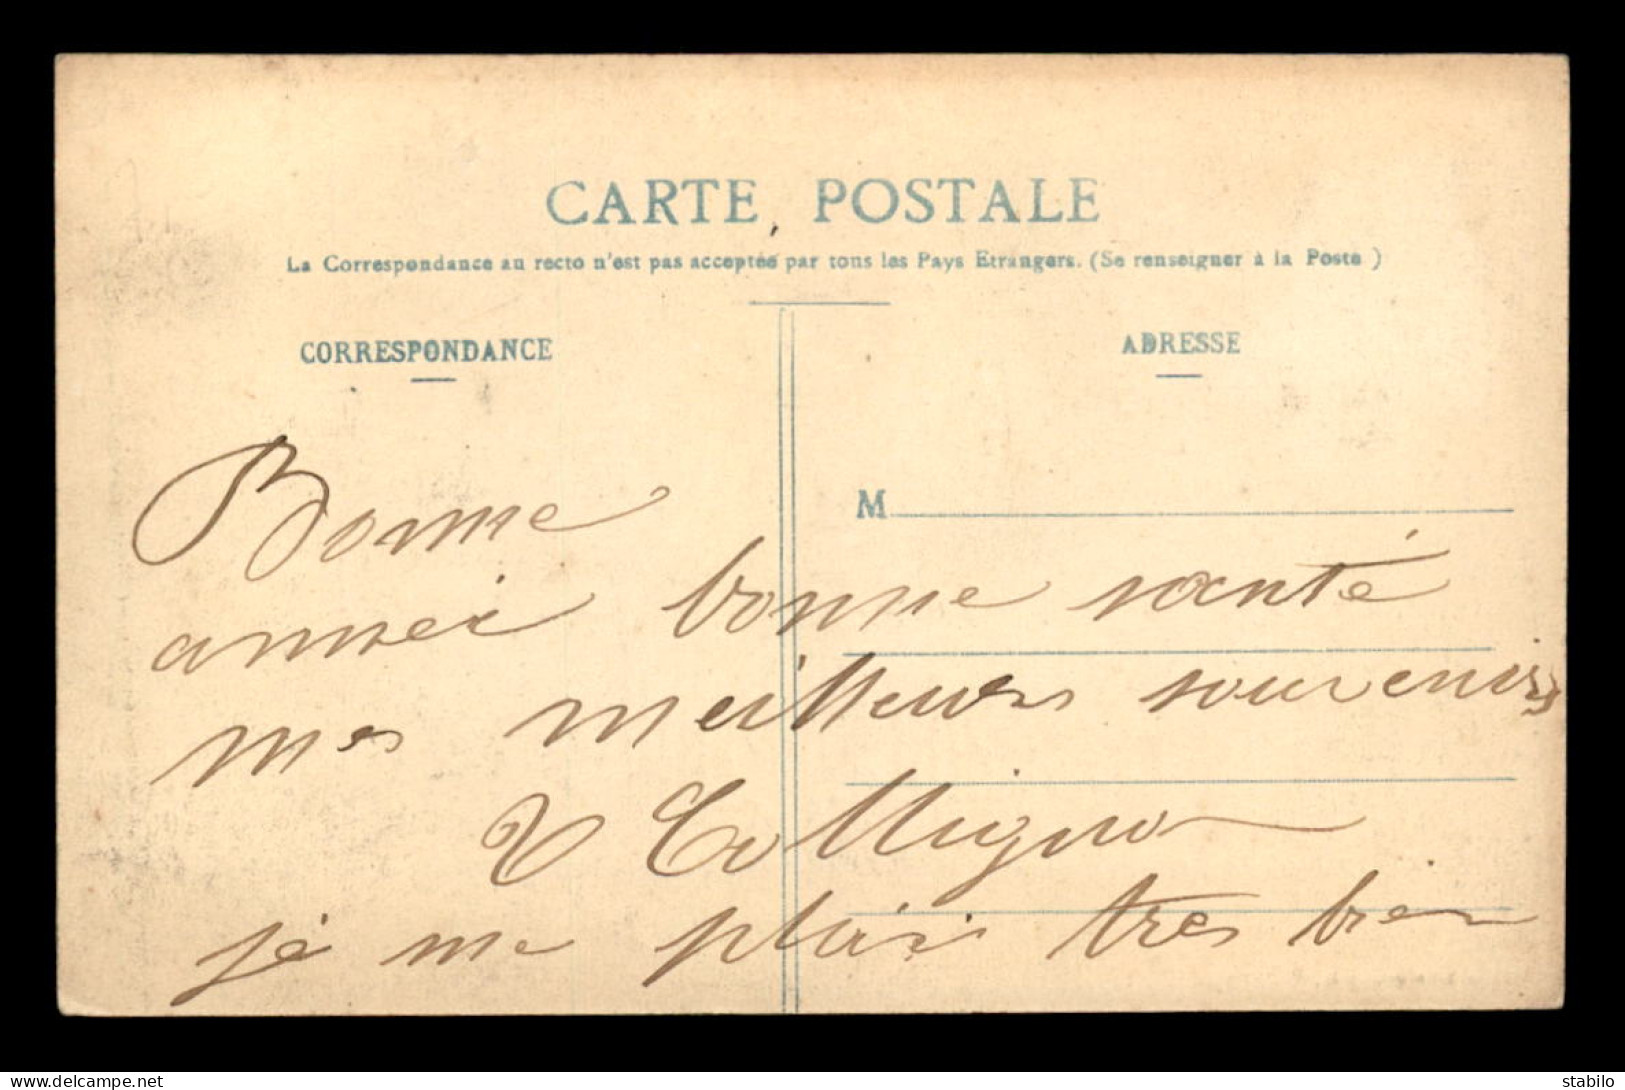 CARTE POSTALE
La Correspondance au recto n'est pas acceptée par tous les Pays Etrangers. (Se renseigner à la Poste)
CORRESPONDANCE
ADRESSE
M
Bonne
année bonne santé
mes meilleurs souvenirs
V Collignon
je me plais tres bien
stabilo